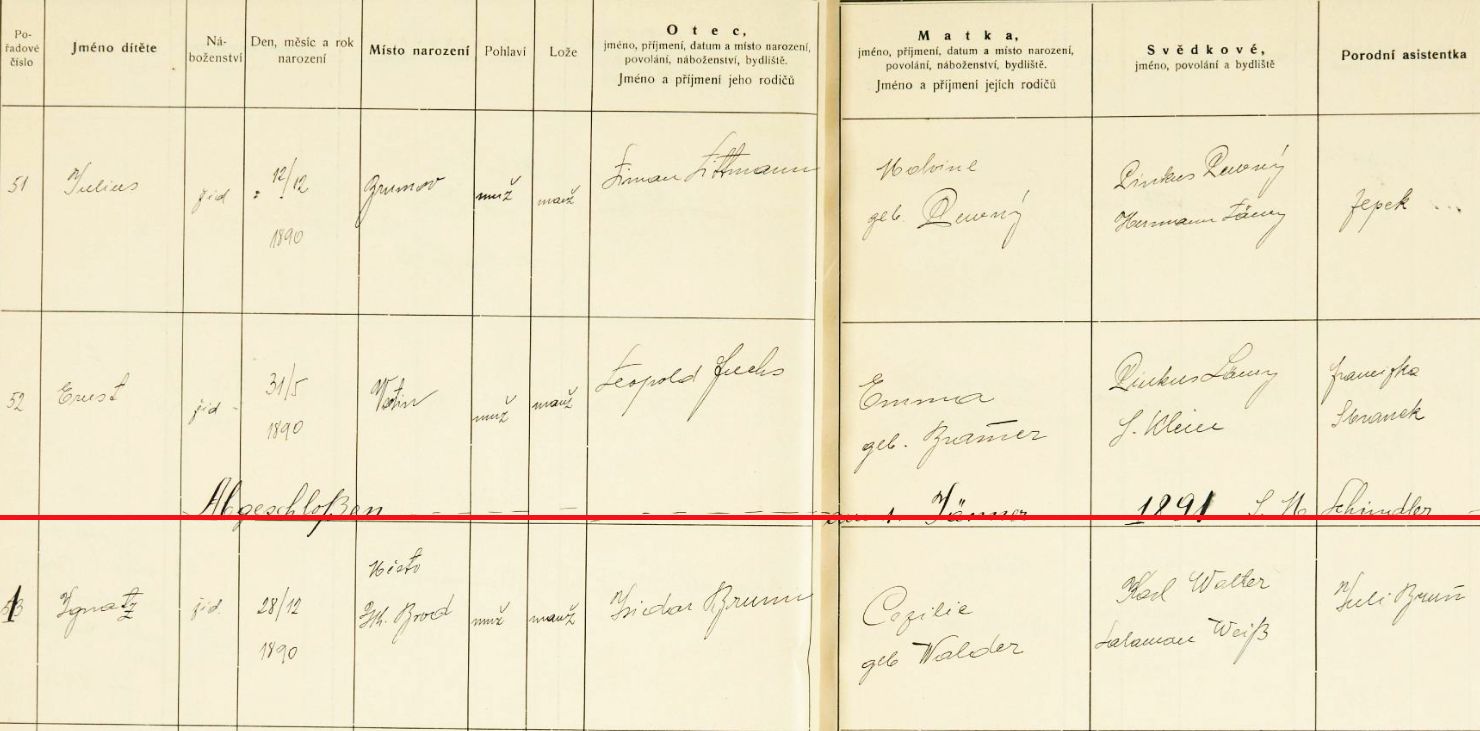 Po-
řadové
číslo
Jméno dítěte
Ná-
boženství
Den, měsíc a rok
narození
Místo narození
Pohlaví
Lože
Otec,
jméno, příjmení, datum a místo narození,
povolání, náboženství, bydliště.
Jméno a příjmení jeho rodičů
Matka,
jméno, příjmení, datum a místo narození,
povolání, náboženství, bydliště.
Jméno a příjmení jejich rodičů
Svědkové,
jméno, povolání a bydliště
Porodní asistentka
51
Julius
žid
12/12
1890
Brumov
muž
manž
Simon Littmann
Malvine
geb.
Pinkus
Hermann Läwy
Jepek
52
Ernst
žid
31/5
1890
Vsetin
muž
manž
Leopold Fuchs
Emma
geb. Bramer
Pinkus Läwy
S. Klein
Franziska
Abgeschloßen
am 1. Jänner
1891
S. M. Schindler
1
Ignatz
žid.
28/12
1890
Město
Brod
muž
manž
Isidor Brunn
Cezilie
geb Walder
Karl Walter
Salamon Weiß
Juli Brun̄